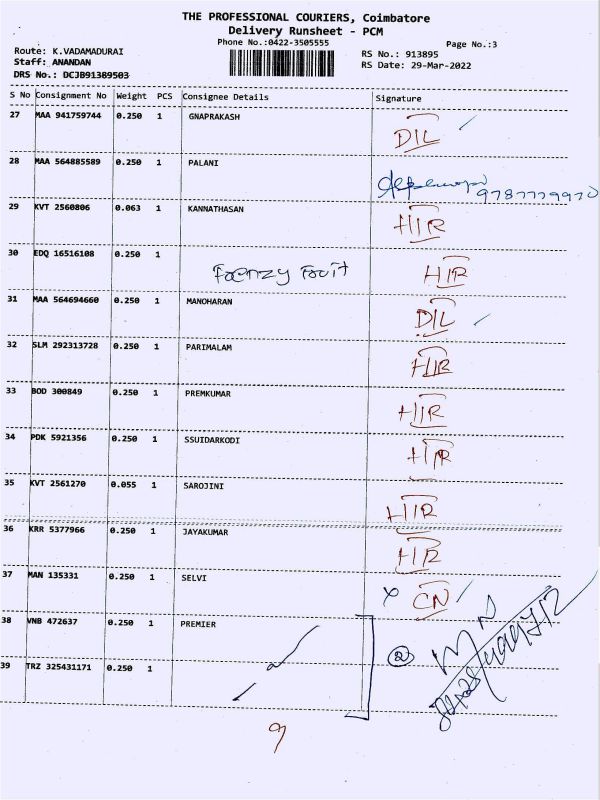 THE PROFESSIONAL COURIERS, Coimbatore
Delivery Runsheet - PCM
Phone No.:0422-3505555
Page No.:3
Route: K.VADAMADURAI
Staff: ANANDAN
DRS No.: DCJB91389503
RS No.: 913895
RS Date: 29-Mar-2022
S No Consignment No Weight PCS Consignee Details Signature
27 MAA 941759744 0.250 1 GNAPRAKASH DIL
28 MAA 564885589 0.250 1 PALANI 9787779970
29 KVT 2560806 0.063 1 KANNATHASAN HIR
30 EDQ 16516108 0.250 1 Frenzy Fruit HIR
31 MAA 564694660 0.250 1 MANOHARAN DIL
32 SLM 292313728 0.250 1 PARIMALAM HIR
33 BOD 300849 0.250 1 PREMKUMAR HIR
34 PDK 5921356 0.250 1 SSUIDARKODI HIR
35 KVT 2561270 0.055 1 SAROJINI HIR
36 KRR 5377966 0.250 1 JAYAKUMAR HIR
37 MAN 135331 0.250 1 SELVI CN
38 VNB 472637 0.250 1 PREMIER
39 TRZ 325431171 0.250 1
9